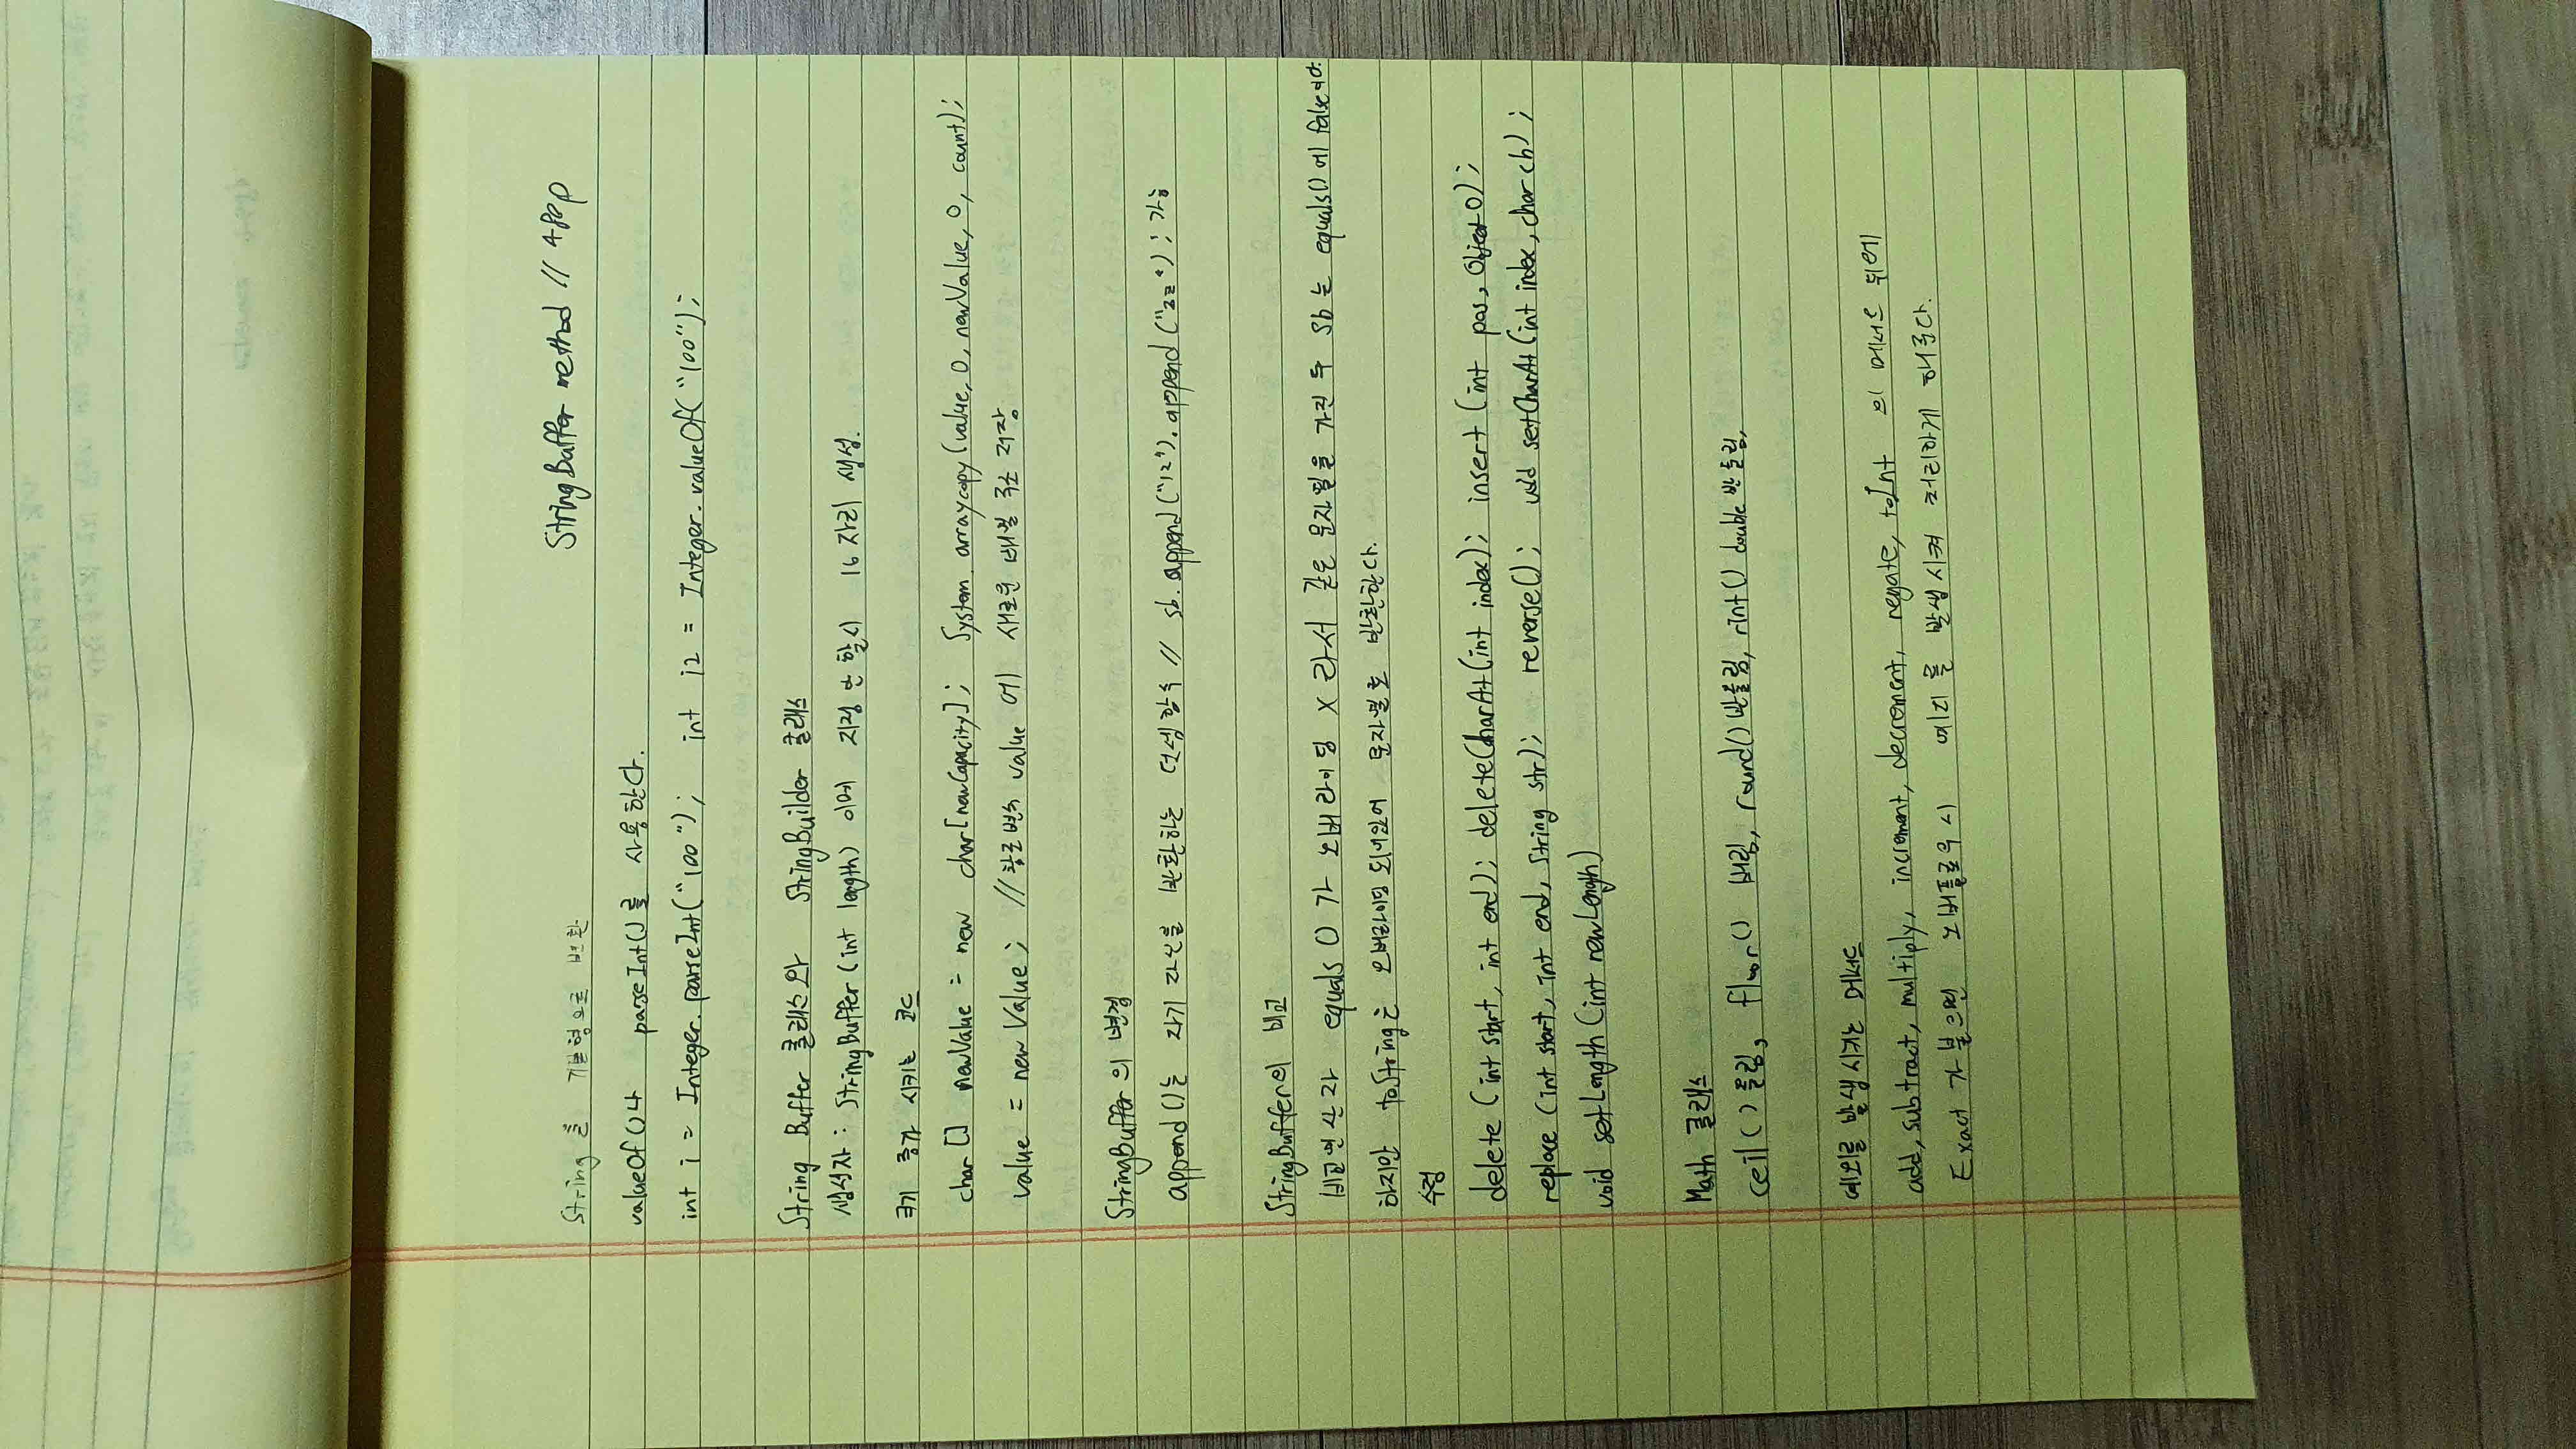 StringBuffer method // 480p
String을 기본형으로 변환
valueOf()나 parseInt()를 사용한다.
int i = Integer.parseInt("100"); int i2 = Integer.valueOf("100");
String Buffer 클래스와 StringBuilder 클래스
생성자 : StringBuffer(int length) 이며 지정 안 할시 16자리 생성.
크기 증가 시키는 코드
char [] newValue = new char[newCapacity]; System.arraycopy(value, 0, newValue, 0, count);
value = new Value; // 참조변수 value에 새로운 배열 주소 저장
StringBuffer의 변경
append()는 자기 자신을 반환하는 덧셈함수 // sb.append("12").append("zz"); 가능
StringBuffer의 비교
비교연산자 equals()가 오버라이딩 X라서 같은 문자열을 가진 두 sb는 equals()에 false
하지만 toString은 오버라이딩 되어있어 문자열로 반환한다.
수정
delete (int start, int end); deleteCharAt(int index); insert (int pos, Object O);
replace (int start, int end, String str); reverse(); void setCharAt (int index, char ch);
void setLength (int newLength)
Math 클래스
ceil() 올림, floor() 버림, round() 반올림, rint() double 반올림,
예외를 발생시키는 메서드
add, subtract, multiply, increment, decrement, negate, toInt 의 메서드 뒤에
Exact가 붙으면 오버플로우시 예외를 발생시켜 처리하게 해준다.